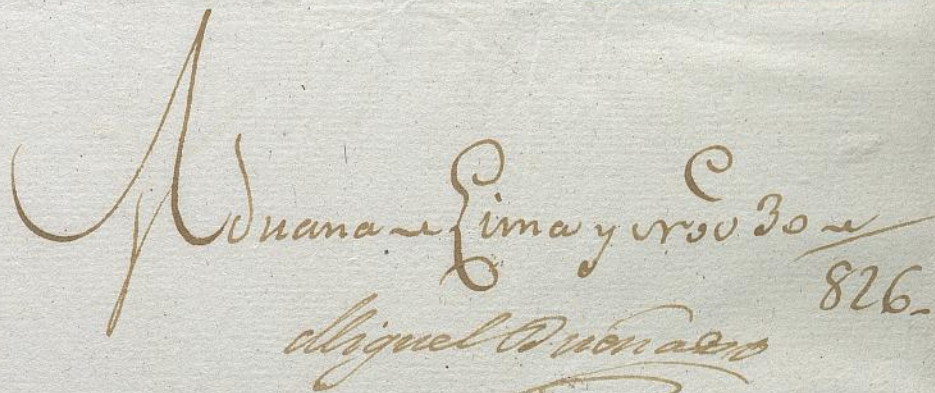 Aduana de Lima y Nov.e 30 de
826-
Miguel